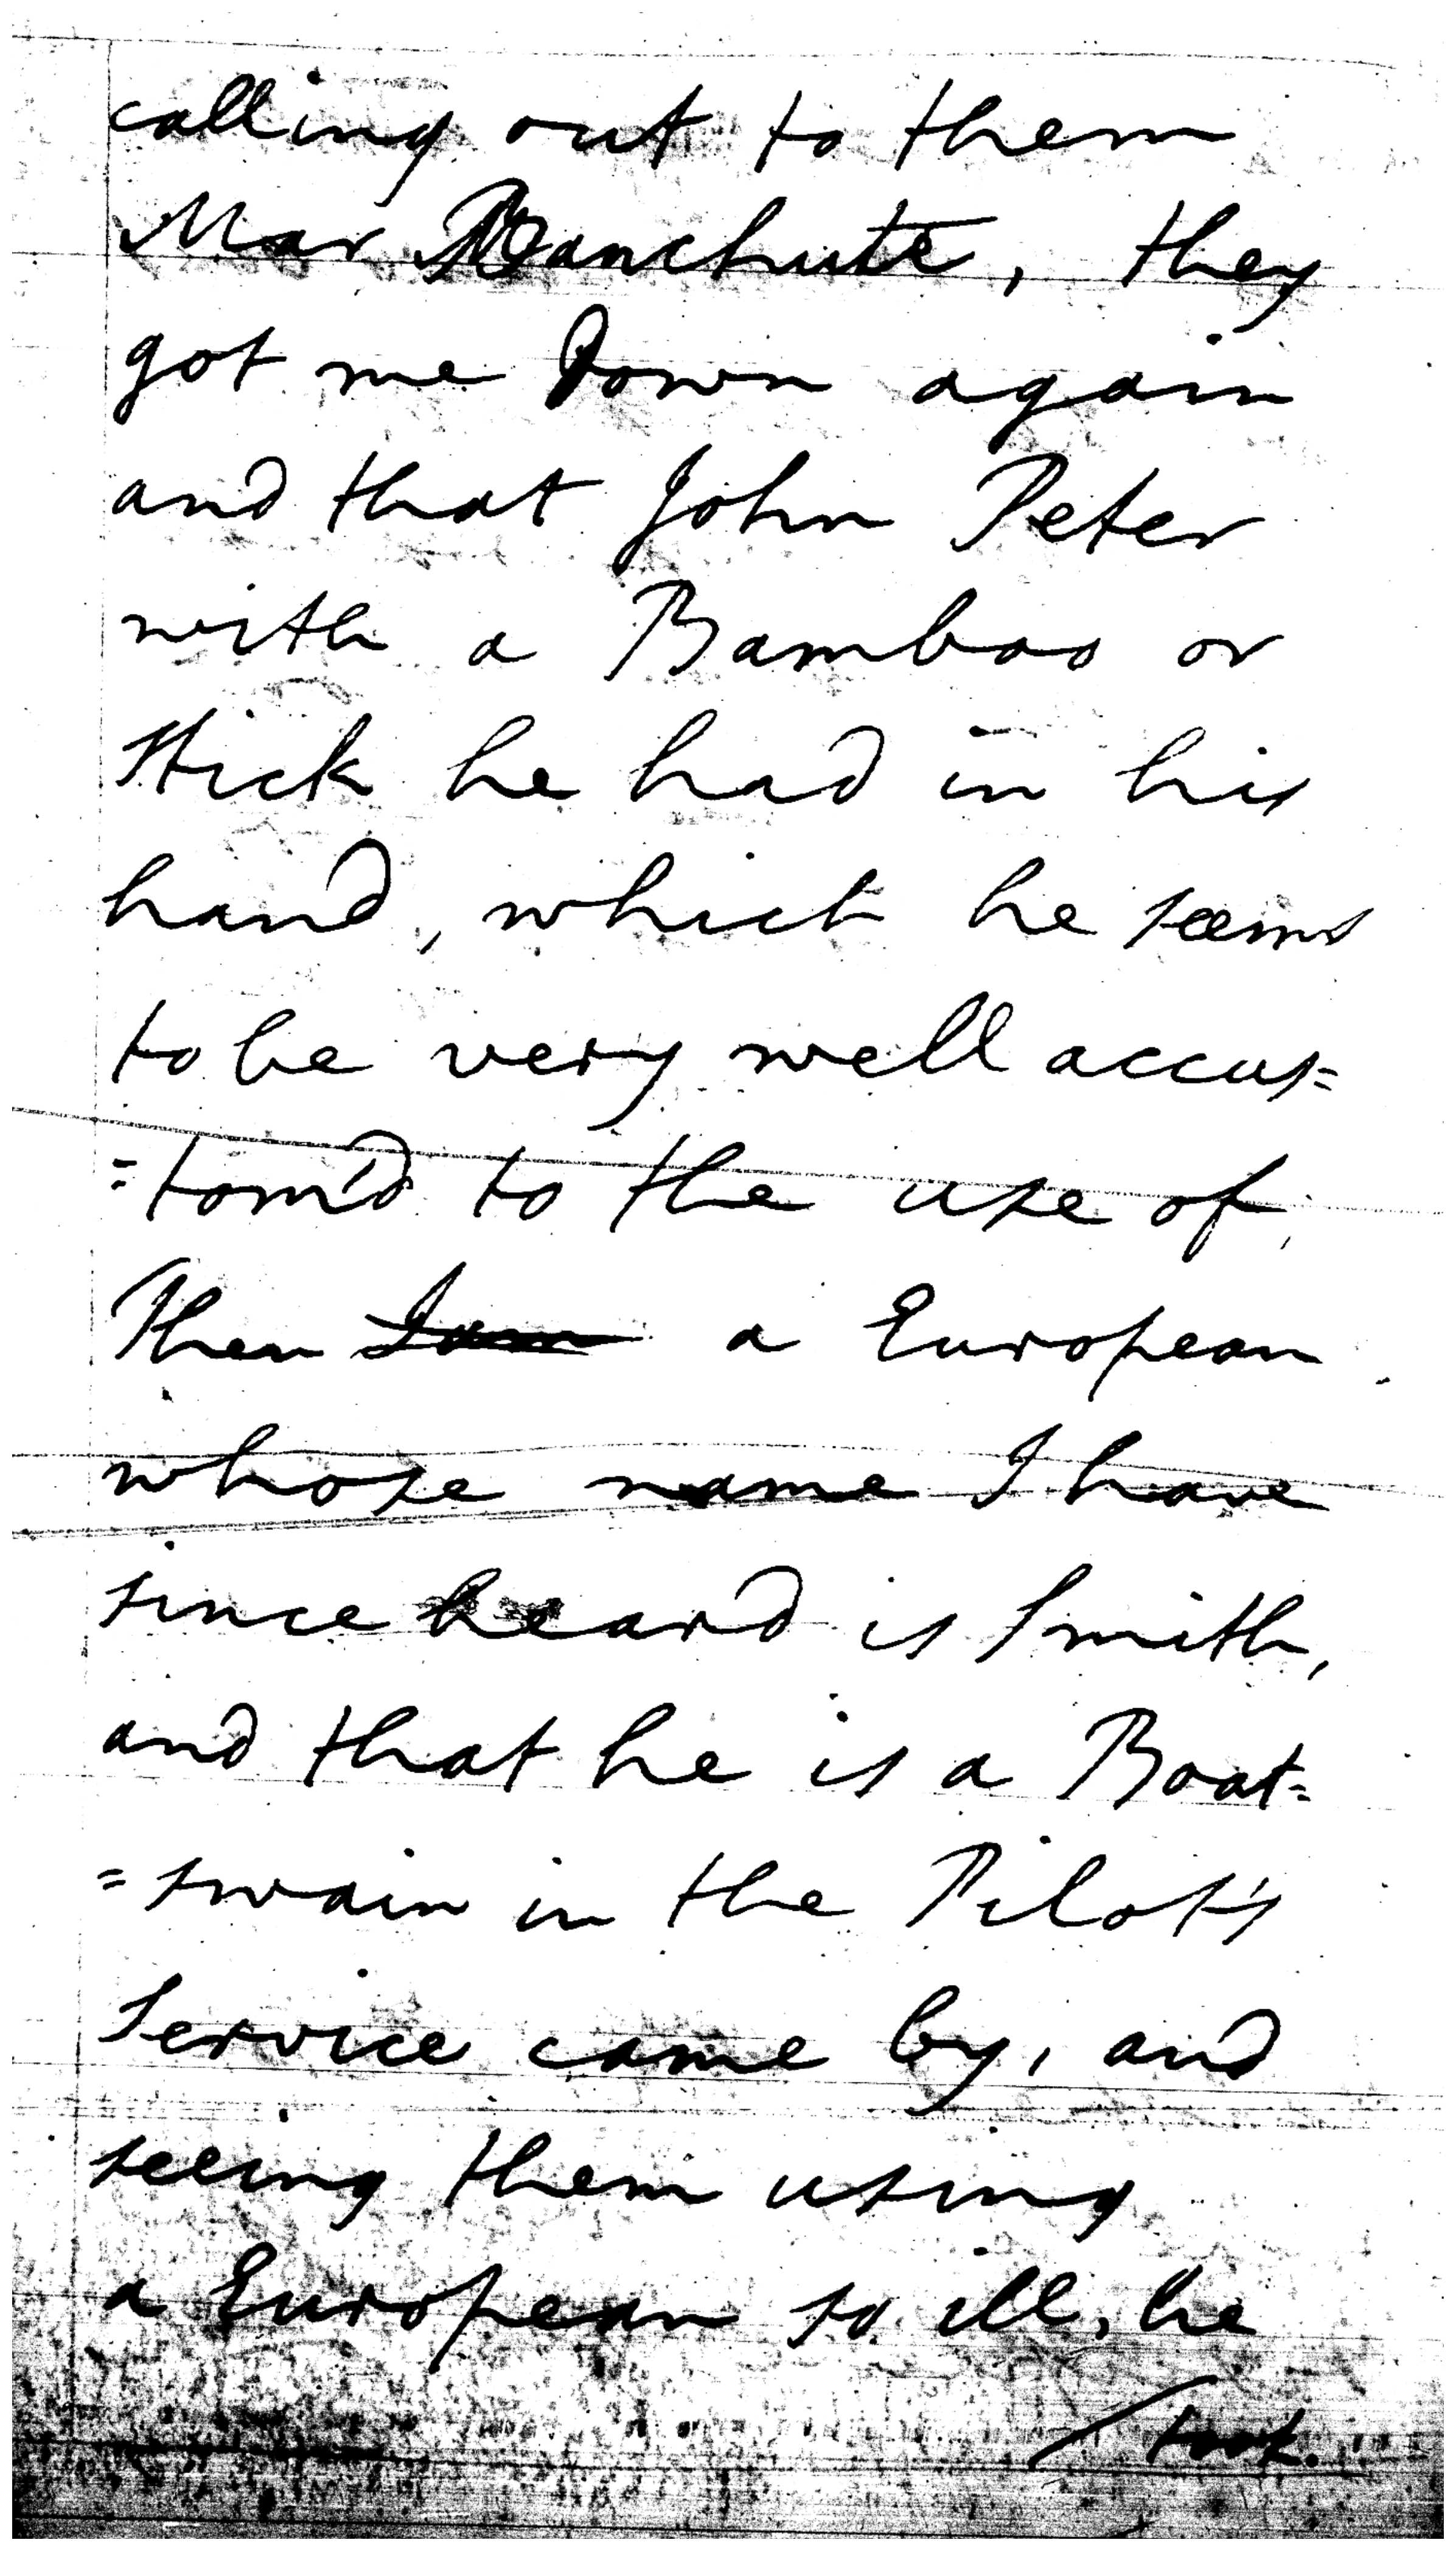 calling out to them
Mar Banchute, they
got me Down again
and that John Peter
with a Bamboo or
Stick he had in his
hand, which he seems
to be very well accus=
=tom'd to the use of,
Then I am a European
whose name I have
since heard is Smith,
and that he is a Boat=
=swain in the Pilot's
Service came by, and
seeing them using
a European so ill, he
/took.